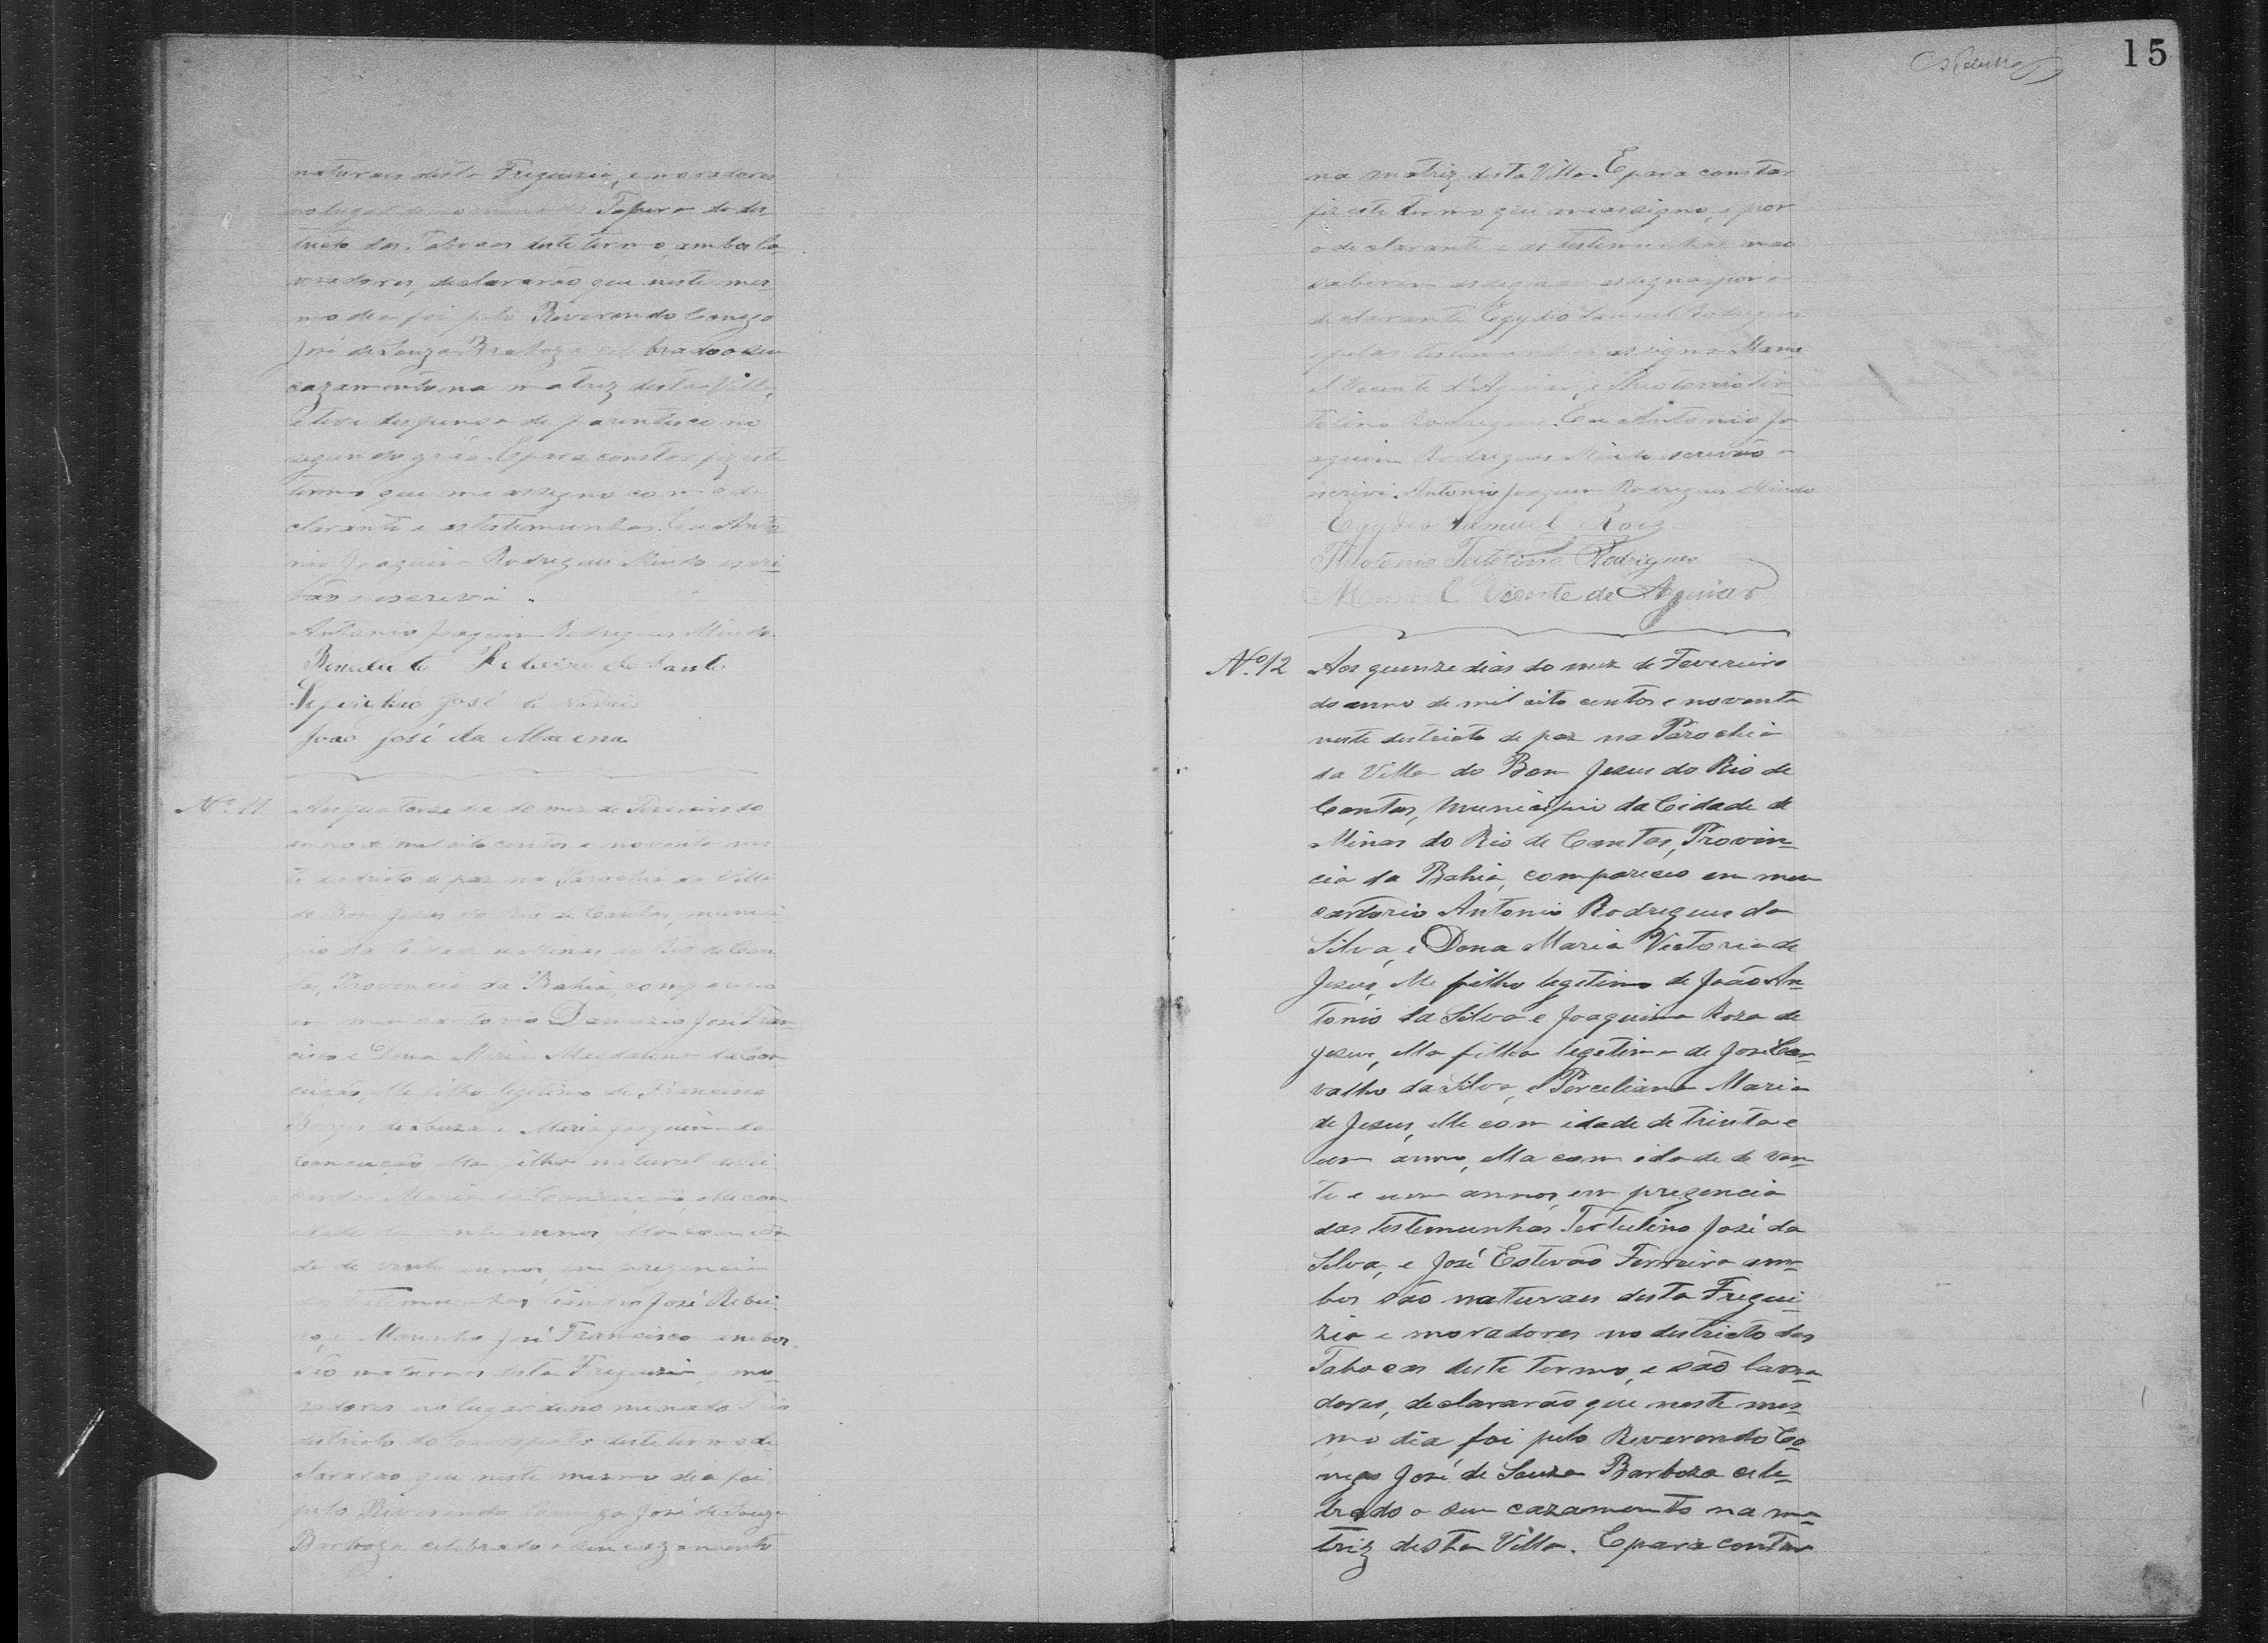 naturaes desta Freguezia, e moradores
no lugar denominado Tapera do des
tricto das Tabocas deste termo, ambos la
vradores, declararão que neste mes
mo dia foi pelo Reverendo Conego
José de Souza Barboza celebrado o seu
cazamento na matriz desta Villa,
e teve despensa de parentesco no
segundo gráo. E para constar fiz este
termo que me assigno com o de
clarante e as testemunhas. Eu Anto
nio Joaquim Rodrigues Mindo escri
vão o escrevi.
Antonio Joaquim Rodrigues Mindo
Benedicto Ribeiro do
José de
João José da
Nº 11
Aos quatorze dia do mez de Fevereiro do
anno de mil oito centos e noventa nes
te destricto de paz na Parochia da Villa
do Bom Jesus do Rio de Contas, munici
pio da Cidade de Minas do Rio de Con
tas, Provincia da Bahia, compareceo
em meu cartorio Damazio José Fran
cisco e Dona Maria Magdalena da Con
ceição, elle filho legitimo de Francisco
Borges de Souza e Maria Joaquina da
Conceição, ella filha natural de
Maria da Conceição, elle com
idade de vinte annos, ella com ida
de de vinte annos, em prezencia
das testemunhas José Ribei
ro, e José Francisco ambos
são naturaes desta Freguezia, e mo
radores no lugar denominado
destricto do deste termo de
clararão que neste mesmo dia foi
pelo Reverendo Conego José de Souza
Barboza celebrado o seu cazamento
15
na matriz desta Villa. E para constar
fiz este termo que me assigno, e por
o declarante e as testemunhas não
saberem assignar assigna por o
declarante Egydio Samuel Rodrigues
e pelas testemunhas assigna Mano
el Vicente d'Aguiar, e Antonio Ter
tolino Rodrigues. Eu Antonio Jo
aquim Rodrigues Mindo escrivão o
escrivi. Antonio Joaquim Rodrigues Mindo
Egydio Samuel Roiz
Antonio Tertolino Rodrigues
Manoel Vicente de Aguiar
Nº 12
Aos quinze dias do mez de Fevereiro
do anno de mil oito centos e noventa
neste destricto de paz na Parochia
da Villa do Bom Jesus do Rio de
Contas, Municipio da Cidade de
Minas do Rio de Contas, Provin-
cia da Bahia, compareceo em meu
cartorio Antonio Rodrigues da
Silva, e Dona Maria Victoria de
Jesus, elle filho legitimo de João An-
tonio da Silva e Joaquina Roza de
Jesus, ella filha legitima de José Car-
valho da Silva, e Porceliana Maria
de Jesus, elle com idade de trinta e
um anno, ella com idade de vin-
te e um annos, em prezencia
das testemunhas Tertulino José da
Silva, e José Estevão Ferreira am-
bos são naturaes desta Fregue-
zia e moradores no destricto das
Tabocas deste termo, e são lavra-
dores, declararão que neste mes-
mo dia foi pelo Reverendo Co-
nego José de Souza Barboza cele-
brado o seu cazamento na ma-
triz desta Villa. E para contar